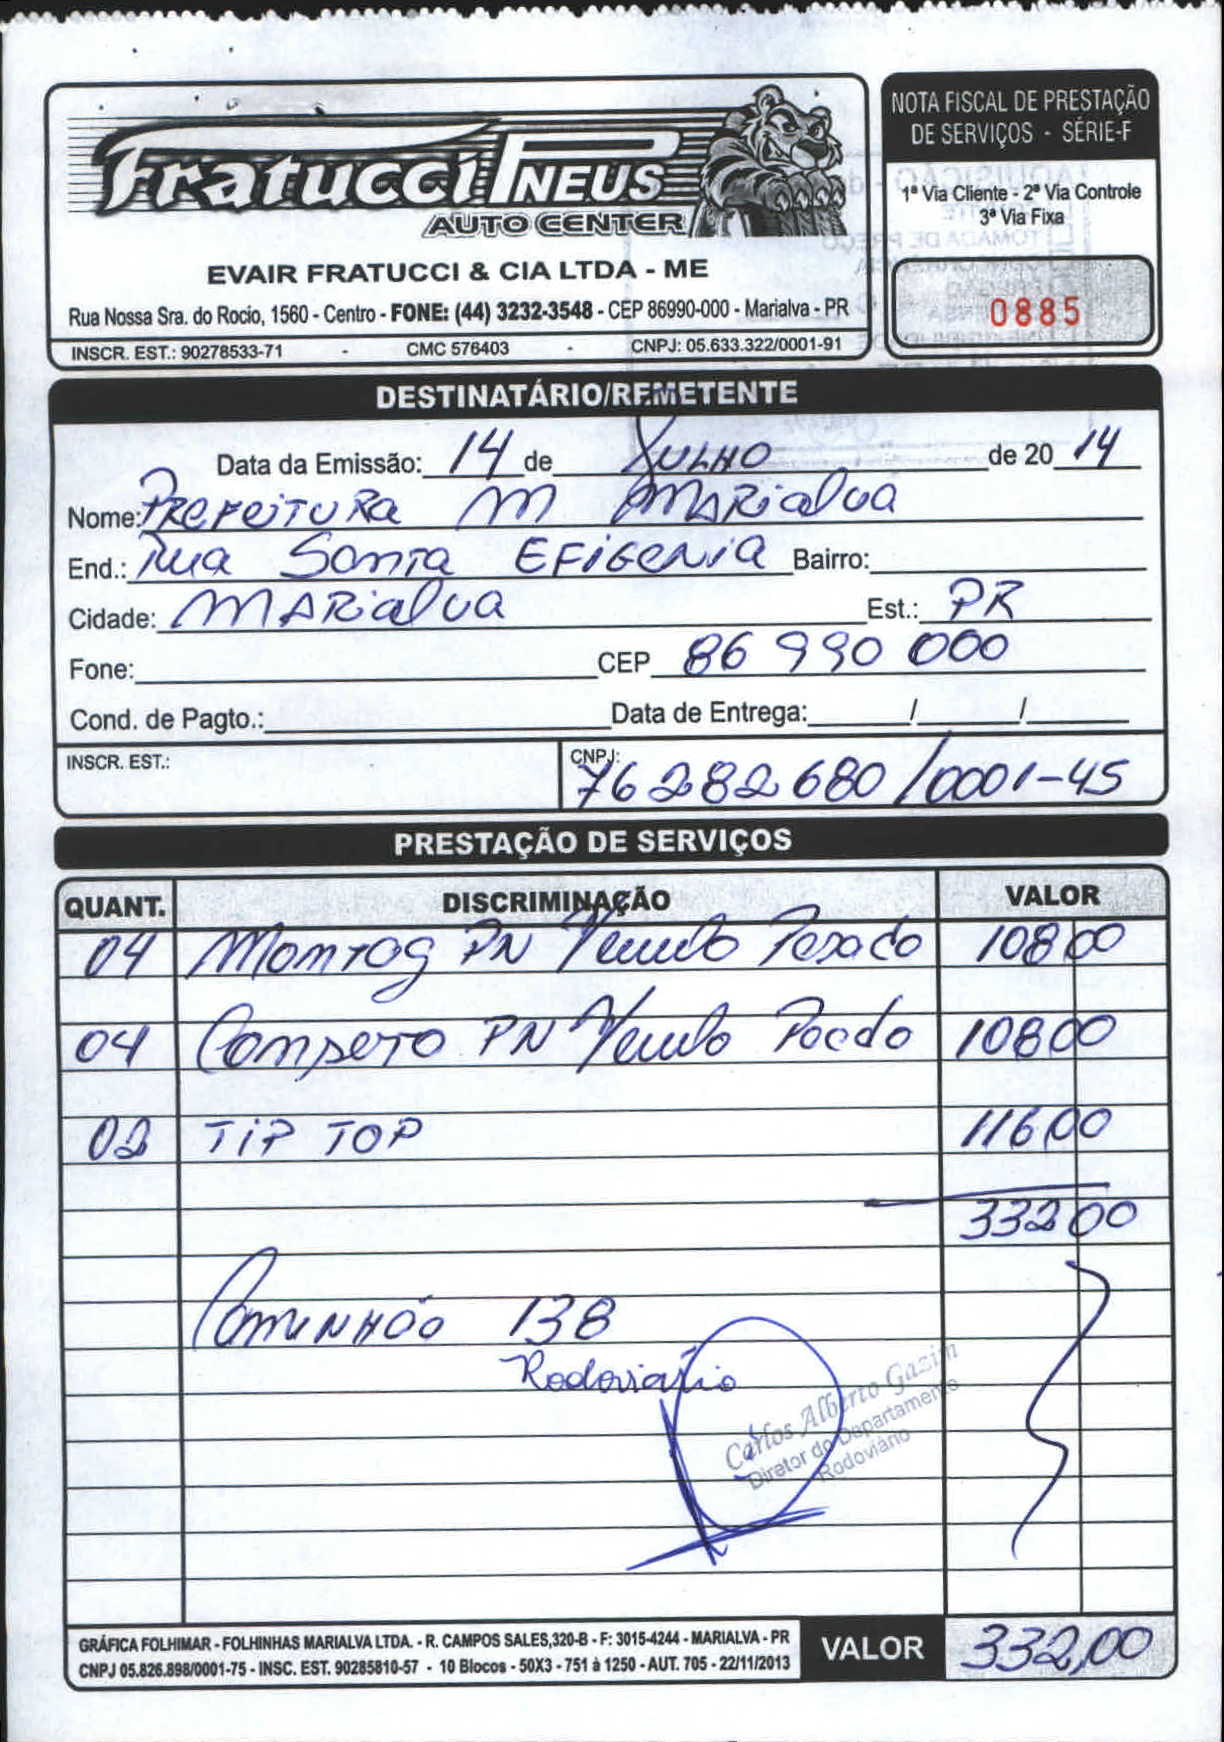 Fratucci PNEUS
AUTO CENTER
EVAIR FRATUCCI & CIA LTDA - ME
Rua Nossa Sra. do Rocio, 1560 - Centro - FONE: (44) 3232-3548 - CEP 86990-000 - Marialva - PR
INSCR. EST.: 90278533-71 - CMC 576403 - CNPJ: 05.633.322/0001-91
NOTA FISCAL DE PRESTAÇÃO
DE SERVIÇOS - SÉRIE-F
1ª Via Cliente - 2ª Via Controle
3ª Via Fixa
0885
DESTINATÁRIO/REMETENTE
Data da Emissão: 14 de JULHO de 20 14
Nome: PREFEITURA M MARialva
End.: Rua Santa EFIGENIA Bairro:
Cidade: MARialva Est.: PR
Fone: CEP 86 990 000
Cond. de Pagto.: Data de Entrega: / /
INSCR. EST.: CNPJ: 76 282 680/0001-45
PRESTAÇÃO DE SERVIÇOS
QUANT. DISCRIMINAÇÃO VALOR
04 Montag PN Veiculo Pesado 108 00
04 Conserto PN Veiculo Pesado 108 00
02 TIP TOP 116,00
332 00
Caminhão 138
Rodoviario
Carlos Alberto Gazim
Diretor do Departamento
Rodoviário
GRÁFICA FOLHIMAR - FOLHINHAS MARIALVA LTDA. - R. CAMPOS SALES,320-B - F: 3015-4244 - MARIALVA - PR
CNPJ 05.826.898/0001-75 - INSC. EST. 90285810-57 - 10 Blocos - 50X3 - 751 à 1250 - AUT. 705 - 22/11/2013
VALOR 332,00